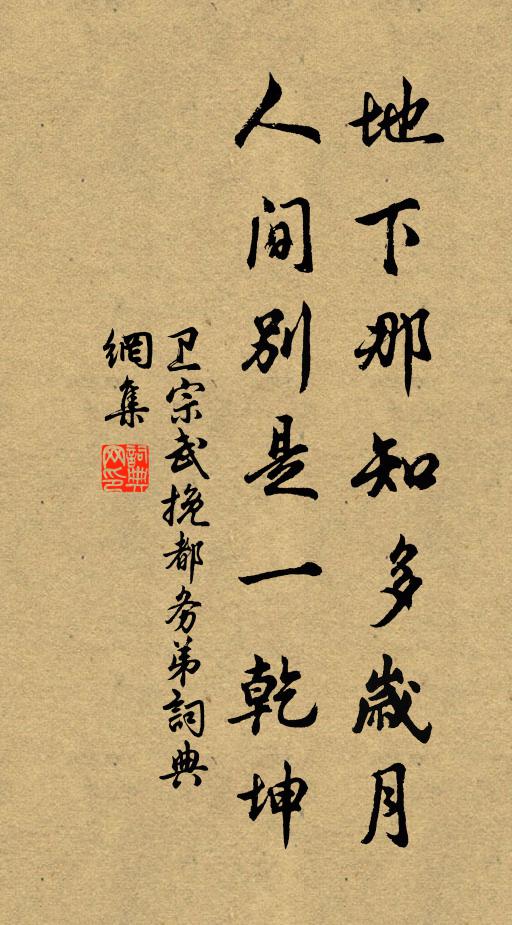 地下那知多歲月
人间別是一乾坤
卫宗武挽都务弟詞典
網集
詞典
网印